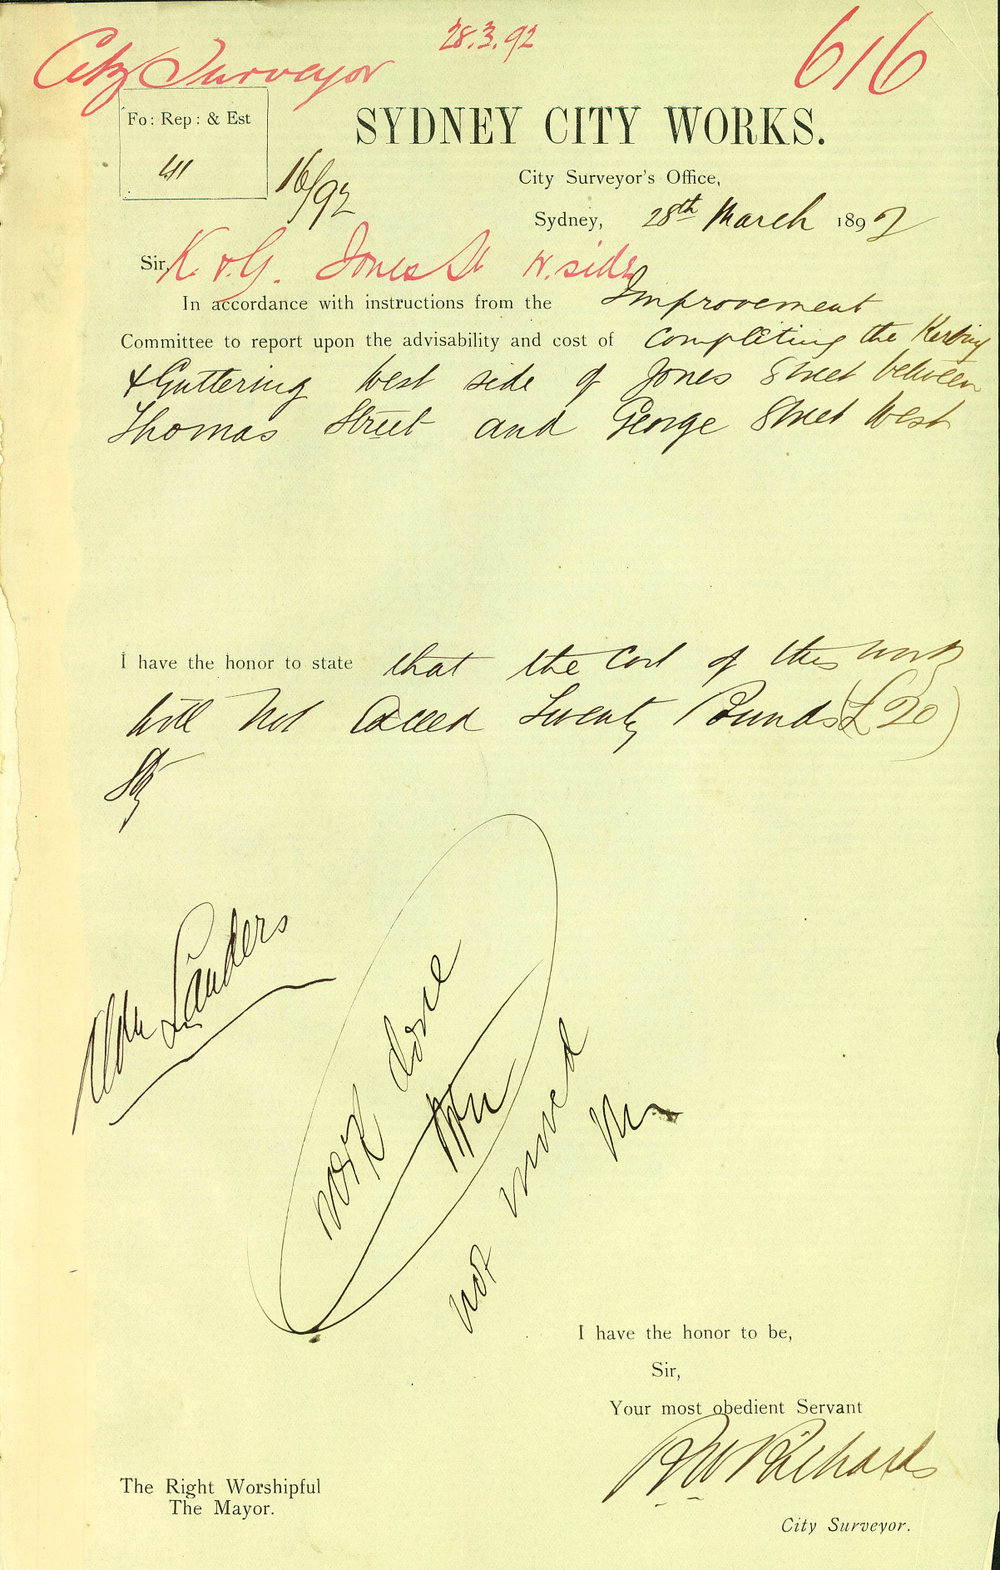 28.3.92
616
City Surveyor
Fo: Rep: & Est
SYDNEY CITY WORKS.
16/92
City Surveyor's Office,
Sydney, 28th March 1892
Sir, K. & G. Jones St W. side
In accordance with instructions from the Improvement
Committee to report upon the advisability and cost of completing the Kerbing
& Guttering West side of Jones Street between
Thomas Street and George Street West
I have the honor to state that the cost of this work
will not exceed Twenty Pounds (£20)
Aldn Landers
work done
not moved
I have the honor to be,
Sir,
Your most obedient Servant
R W Richards
The Right Worshipful
The Mayor.
City Surveyor.